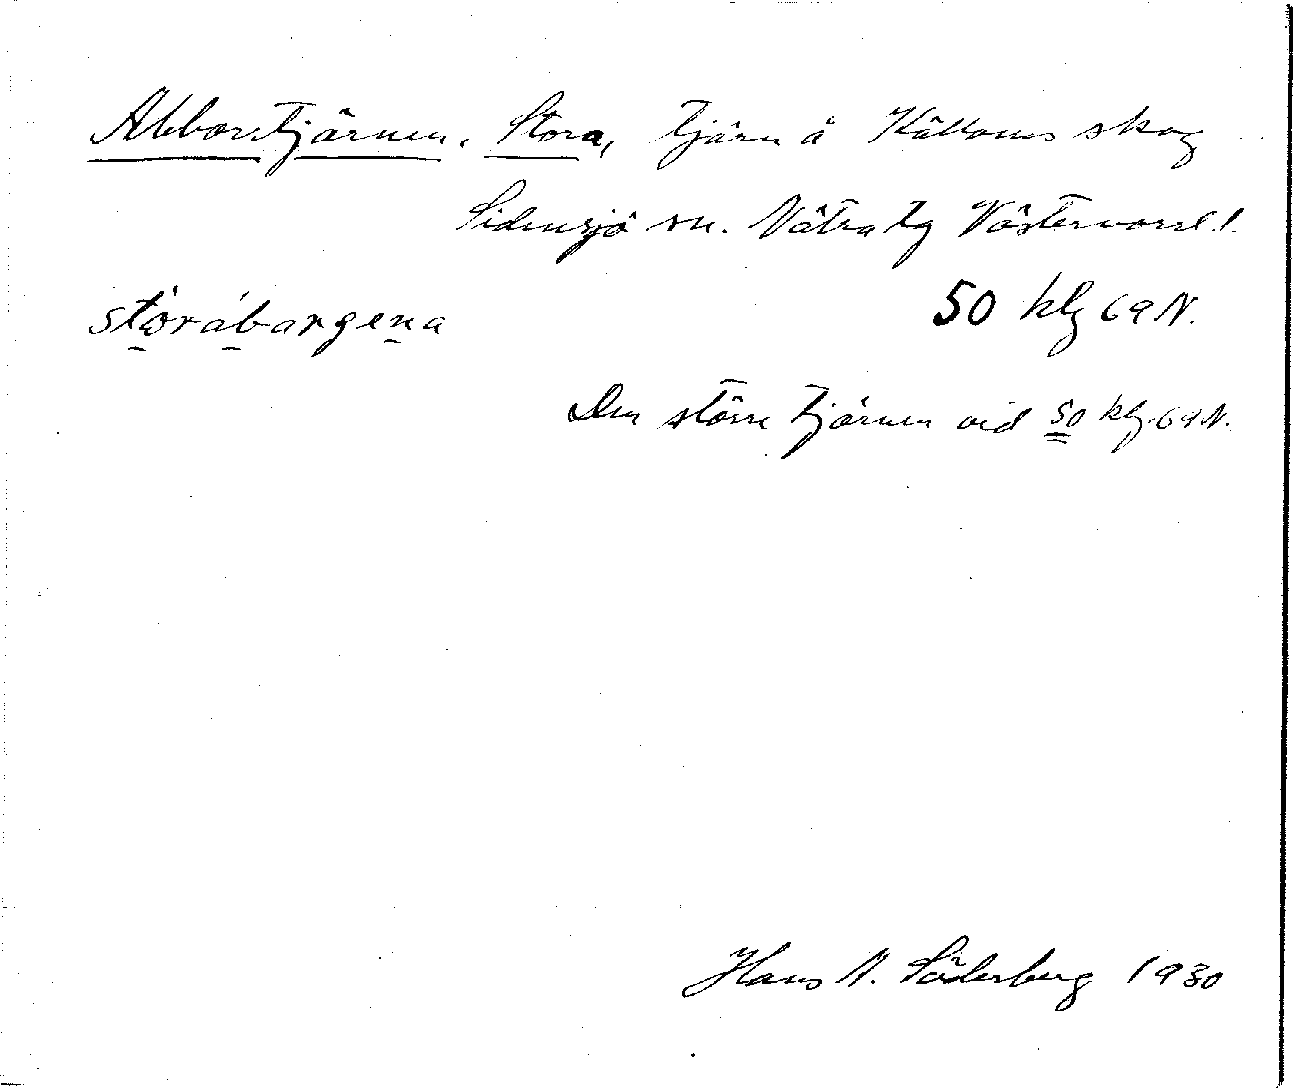 Abborrtjärnen, Stora, tjärn å Källoms skog
Sidensjö sn. Nätra tg Västernorrl.l.
stòrábargena
50 klg 69 N.
Den större tjärnen vid 50 klg. 69 N.
Hans N. Söderberg 1930